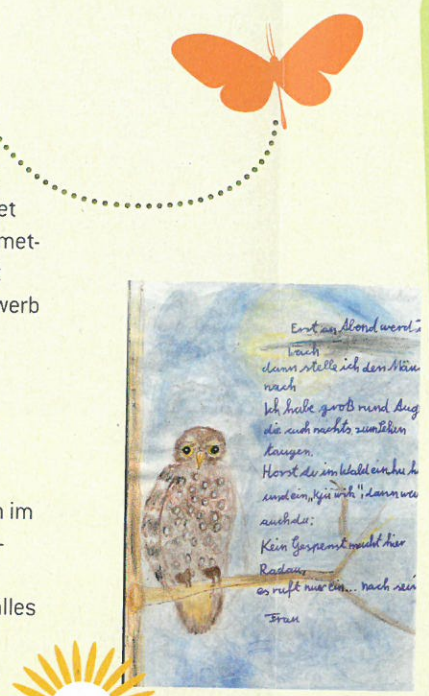 et
met-
werb
n im
-
alles
Erst am Abend werd
wach
dann stelle ich den Mäu
nach
Ich habe groß rund Aug
die auch nachts zum Sehen
taugen.
Hörst du im Wald ein hu h
und ein „Kju wih", dann we
auch du:
Kein Gespenst macht hier
Radau,
es ruft nur ein... nach sei
Frau